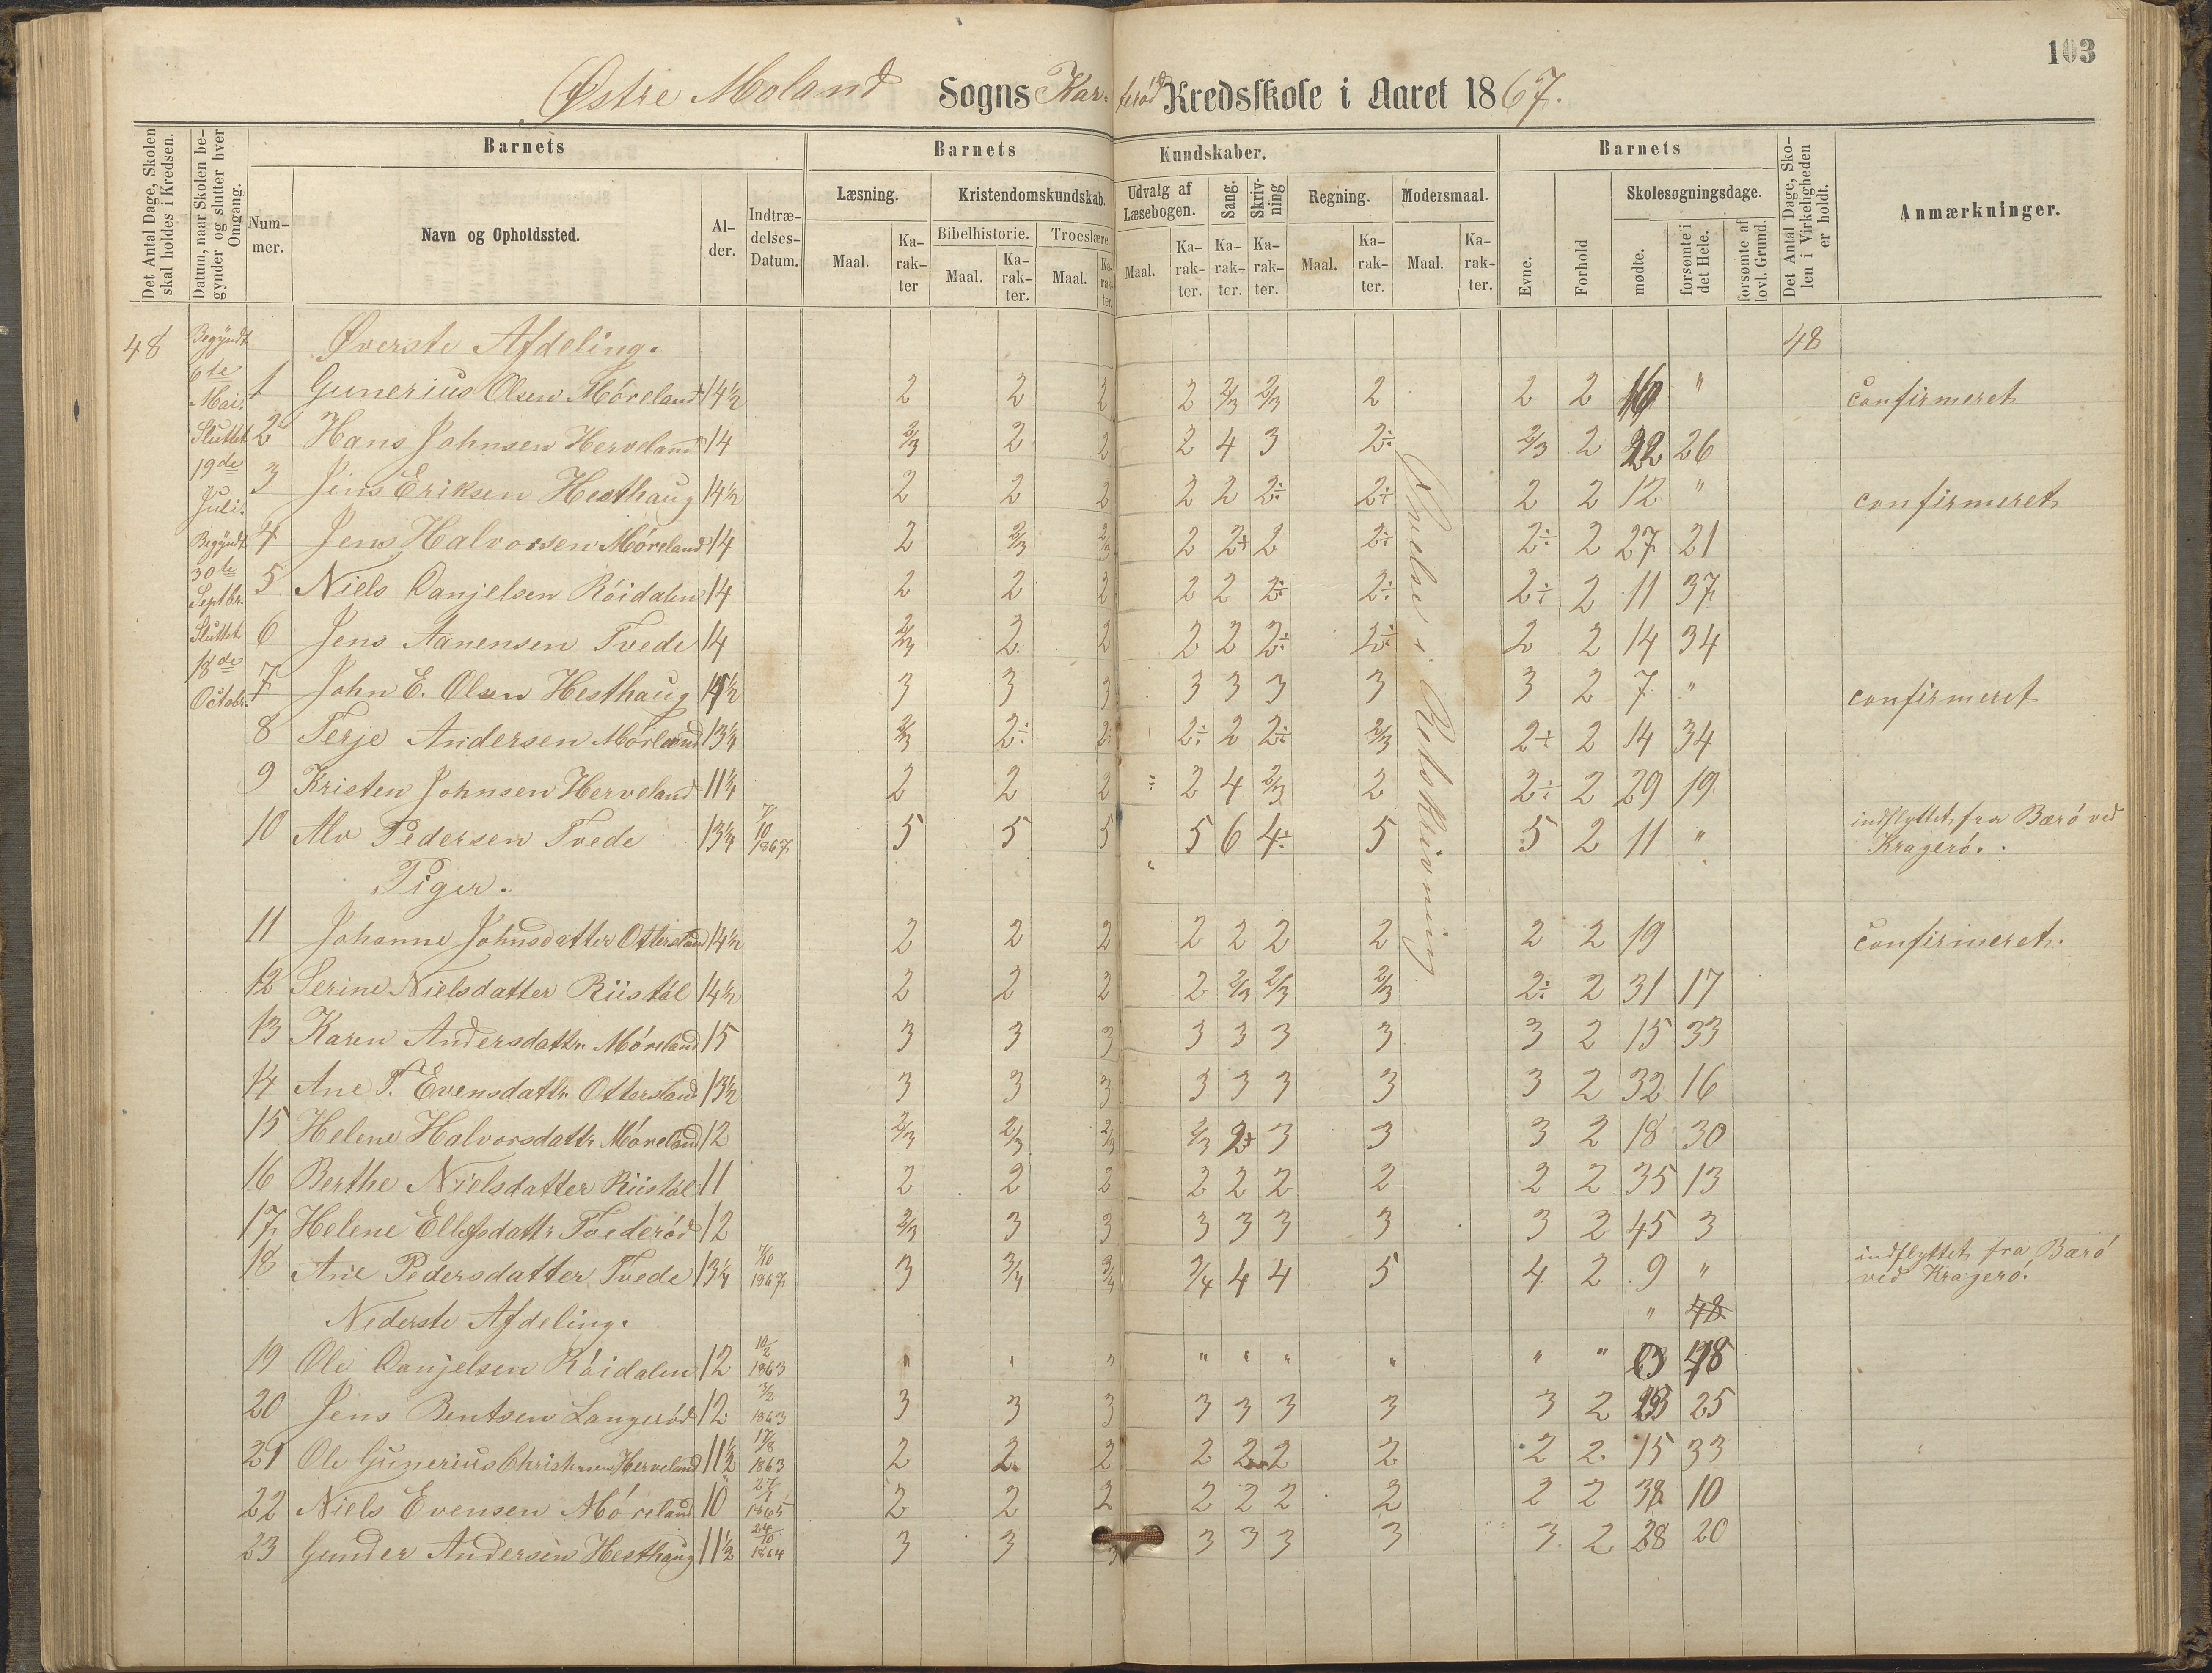 103
Østre Moland Sogns Kar- terød Kredsskole i Aaret 1867.
Det Antal Dage, Skolen skal holdes i Kredsen.
Datum, naar Skolen be- gynder og slutter hver Omgang.
Barnets
Num- mer.
Navn og Opholdssted.
Al- der.
Indtræ- delses- Datum.
Barnets Kundskaber.
Læsning.
Maal. Ka- rak- ter
Kristendomskundskab.
Bibelhistorie. Troeslære.
Maal. Ka- rak- ter. Maal. Ka- rak- ter.
Udvalg af Læsebogen.
Maal. Ka- rak- ter.
Sang. Ka- rak- ter.
Skriv- ning Ka- rak- ter.
Regning.
Maal. Ka- rak- ter.
Modersmaal.
Maal. Ka- rak- ter.
Barnets
Evne.
Forhold
Skolesøgningsdage.
mødte. forsømte i det Hele. forsømte af lovl. Grund.
Det Antal Dage, Sko- len i Virkeligheden er holdt.
Anmærkninger.
48 Begyndt 6te Mai. Sluttet 19de Juli. Begyndt 30te Septbr. Sluttet 18de Octobr.
Øverste Afdeling. 48
1 Gunerius Olsen Móreland 14½ 2 2 2 2 2/3 2/3 2 2 2 16 " Confirmeret
2 Hans Johnsen Herveland 14 2/3 2 2 2 4 3 2÷ 2/3 2 22 26
3 Jens Eriksen Hesthaug 14½ 2 2 2 2 2 2÷ 2÷ 2 2 12 " confirmeret
4 Jens Halvorsen Móreland 14 2 2/3 2/3 2 2+ 2 2÷ 2÷ 2 27 21
5 Niels Danjelsen Róidalen 14 2 2 2 2 2 2÷ 2÷ 2÷ 2 11 37
6 Jens Aanensen Tvede 14 2/3 2 2 2 2 2÷ 2÷ 2 2 14 34
7 John E. Olsen Hesthaug 14½ 3 3 3 3 3 3 3 3 2 7 " confirmeret
8 Terje Andersen Móreland 13¼ 2/3 2÷ 2÷ 2÷ 2 2÷ 2/3 2÷ 2 14 34
9 Kristen Johnsen Herveland 11¼ 2 2 2 2 4 2/3 2 2÷ 2 29 19
10 Alv Pedersen Tvede 13¼ 7/10 1867 5 5 5 5 6 4÷ 5 5 2 11 " indflyttet fra Bæró ved
Krageró.
Øvelse i Retskrivning
Piger.
11 Johanne Johnsdatter Ottersland 14½ 2 2 2 2 2 2 2 2 2 19 Confirmeret.
12 Serine Nielsdatter Riistól 14½ 2 2 2 2 2/3 2/3 2/3 2÷ 2 31 17
13 Karen Andersdattr Móreland 15 3 3 3 3 3 3 3 3 2 15 33
14 Ane T. Evensdattr Ottersland 13½ 3 3 3 3 3 3 3 3 2 32 16
15 Helene Halvorsdattr Móreland 12 2/3 2/3 2/3 2/3 2+ 3 3 3 2 18 30
16 Berthe Nielsdatter Riistól 11 2 2 2 2 2 2 2 2 2 35 13
17 Helene Ellefsdattr Tvederód 12 2/3 3 3 3 3 3 3 3 2 45 3
18 Ane Pedersdatter Tvede 13¼ 7/10 1867 3 3/4 3/4 3/4 4 4 5 4 2 9 " indflyttet fra Bæró
ved Krageró.
Nederste Afdeling. " 48
19 Ole Danjelsen Róidalen 12 10/2 1863 " " " " " " " " " 48
20 Jens Bentsen Langeród 12 3/2 1863 3 3 3 3 3 3 3 3 2 23 25
21 Ole Gunerius Christensen Herveland 11½ 17/8 1863 2 2 2 2 2 2 2 2 2 15 33
22 Niels Evensen Móreland 10 27/1 1865 2 2 2 2 2 2 2 2 2 38 10
23 Gunder Andersen Hesthaug 11½ 24/10 1864 3 3 3 3 3 3 3 3 2 28 20